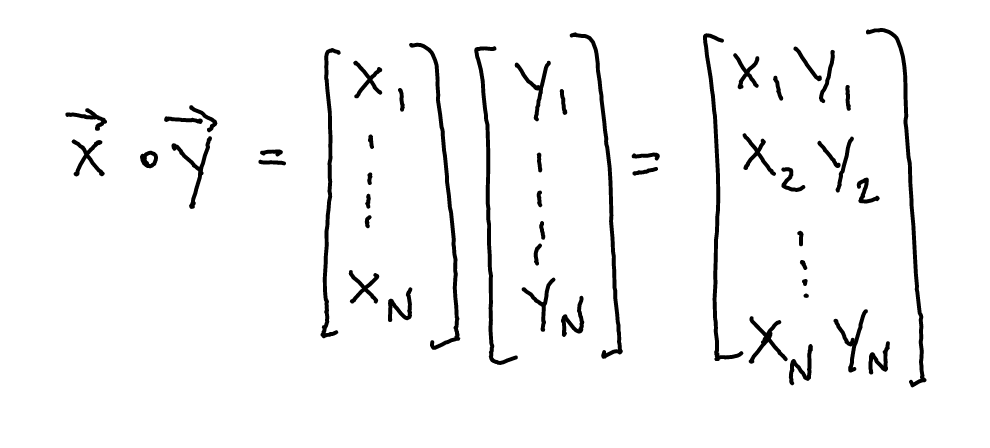 $$\vec{x} \circ \vec{y} = \begin{bmatrix} x_1 \\ \vdots \\ x_N \end{bmatrix} \begin{bmatrix} y_1 \\ \vdots \\ y_N \end{bmatrix} = \begin{bmatrix} x_1 y_1 \\ x_2 y_2 \\ \vdots \\ x_N y_N \end{bmatrix}$$